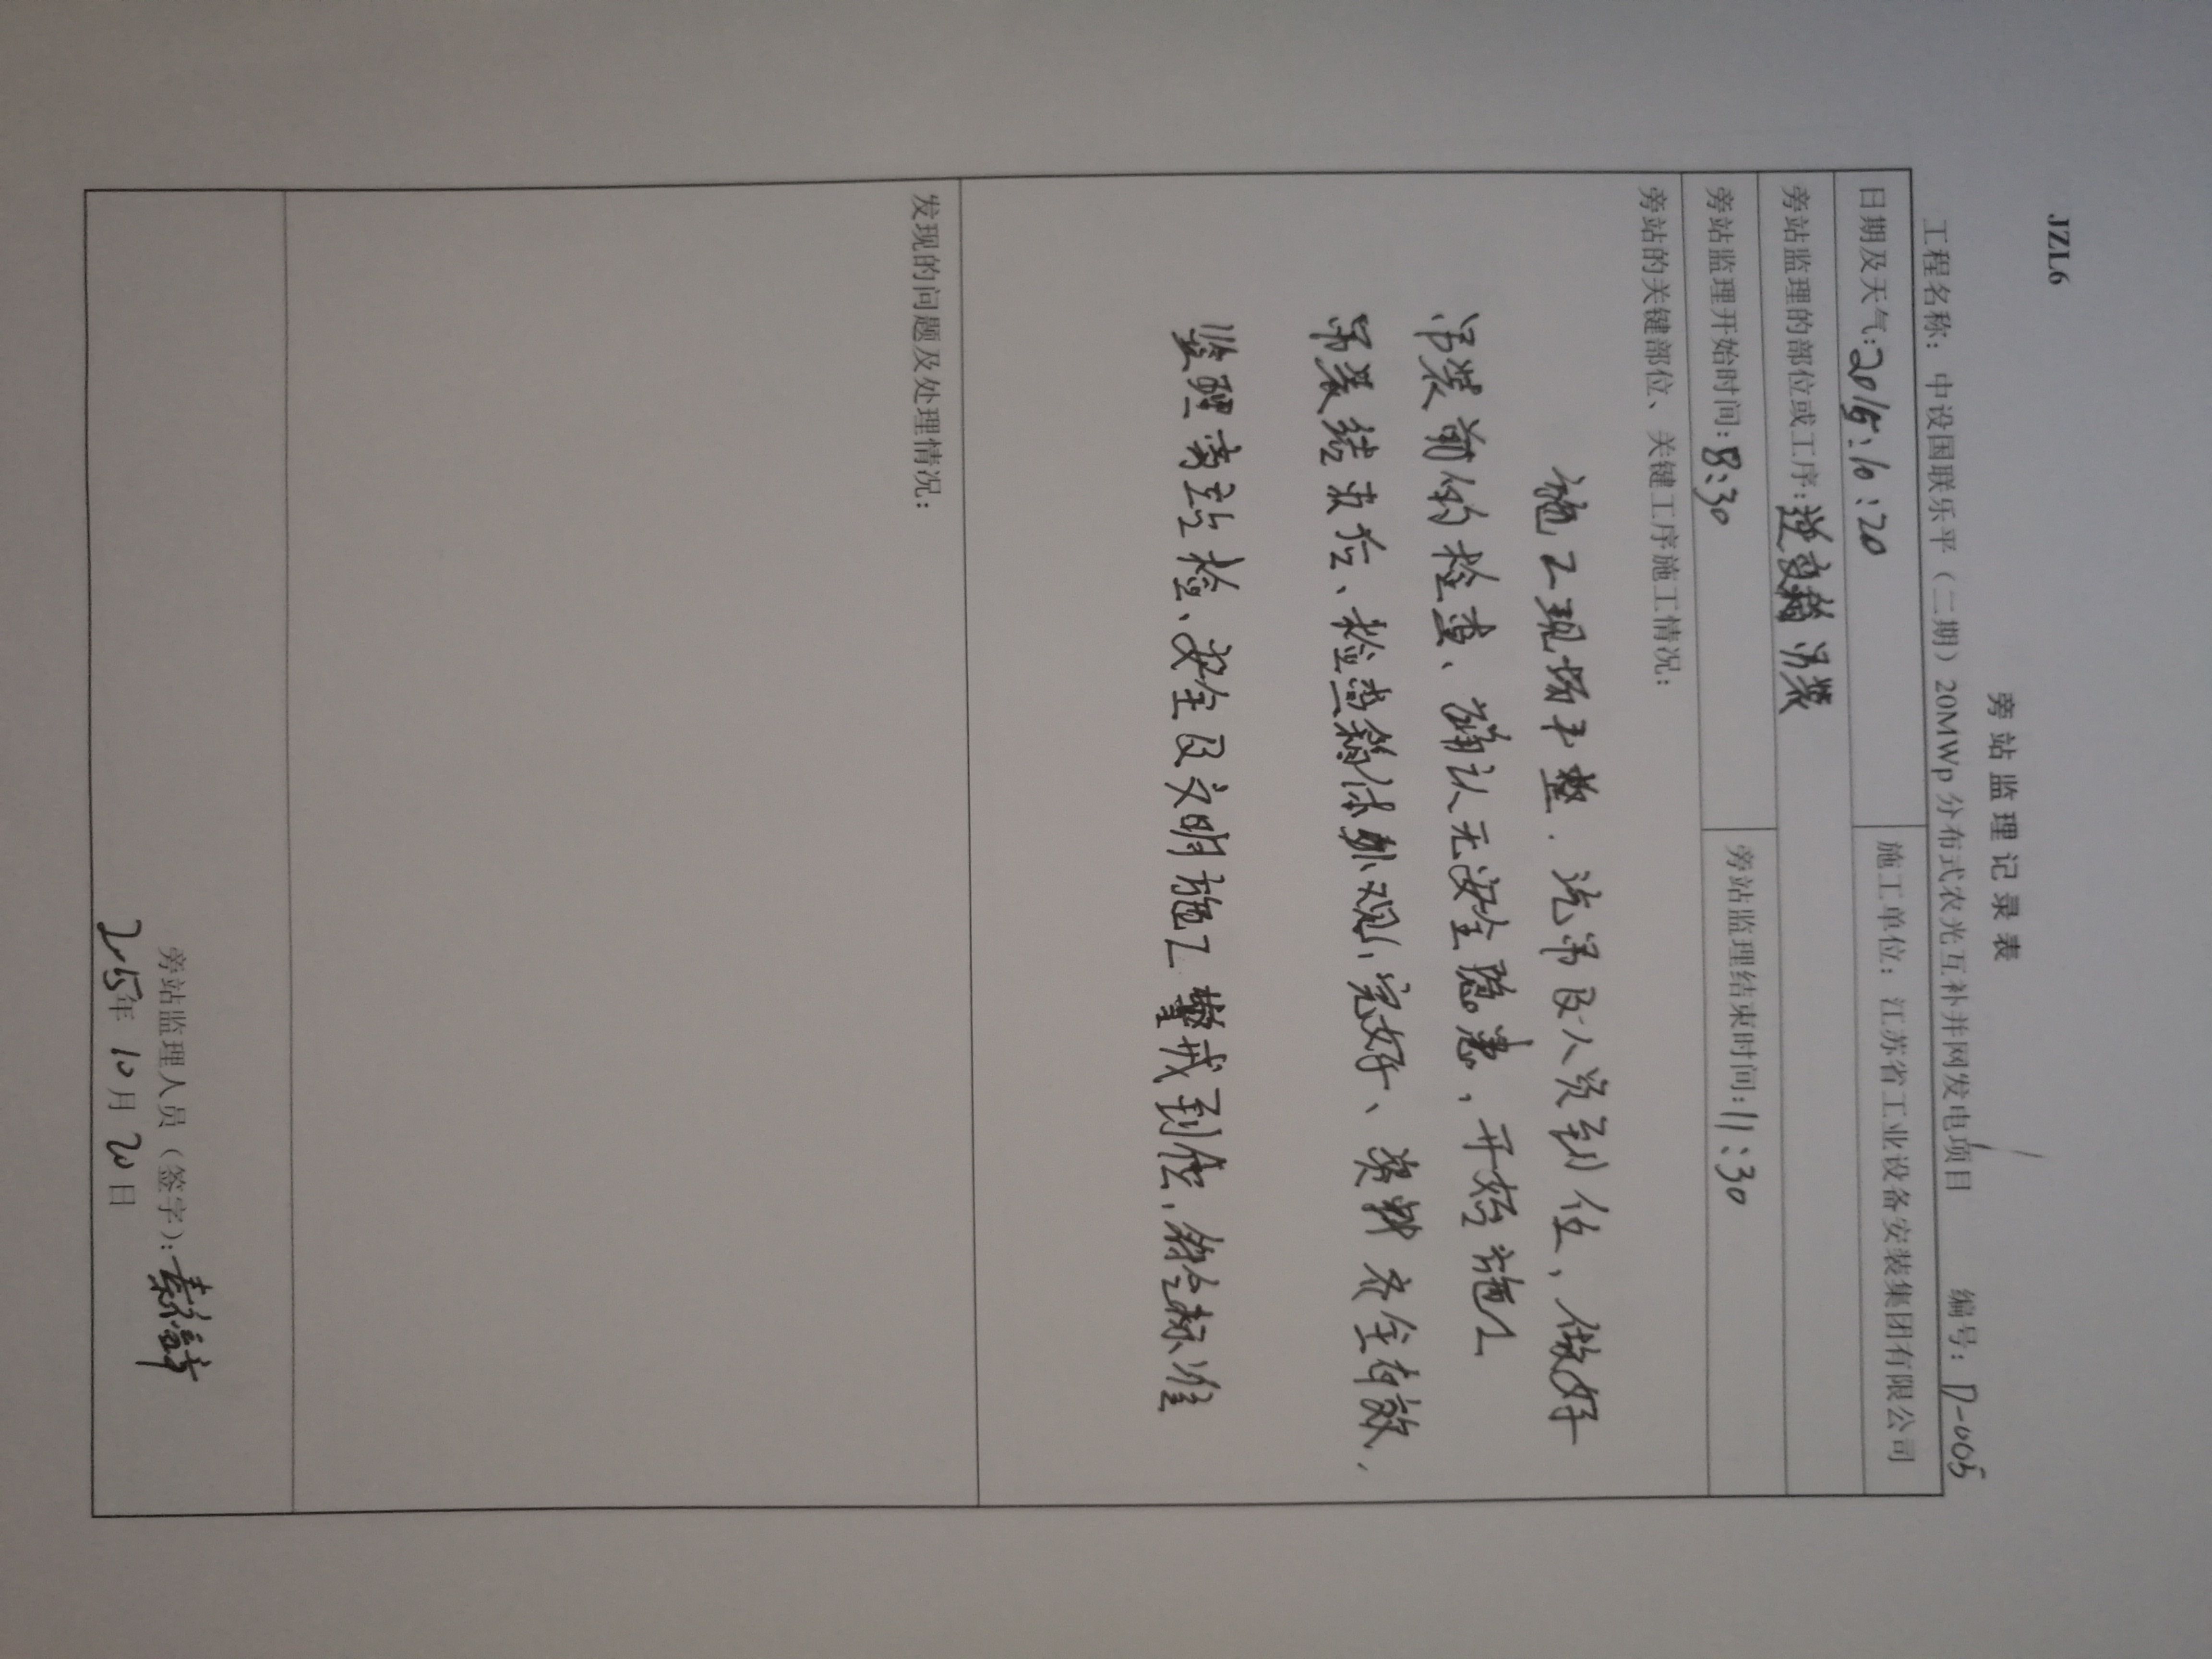 JZL6
旁站监理记录表
工程名称：中设国联乐平（二期）20MWp分布式农光互补并网发电项目 编号：D-005
日期及天气：2015:10:20 施工单位：江苏省工业设备安装集团有限公司
旁站监理的部位或工序：逆变箱吊装
旁站监理开始时间：8:30 旁站监理结束时间：11:30
旁站的关键部位、关键工序施工情况：
施工现场平整，汽吊及人员到位，做好
吊装前的检查、确认无安全隐患，开始施工
吊装结束后、检查箱体外观完好、资料齐全有效，
监理旁站检、安全及文明施工警戒到位，符合标准
发现的问题及处理情况：
旁站监理人员（签字）：
2015年10月20日